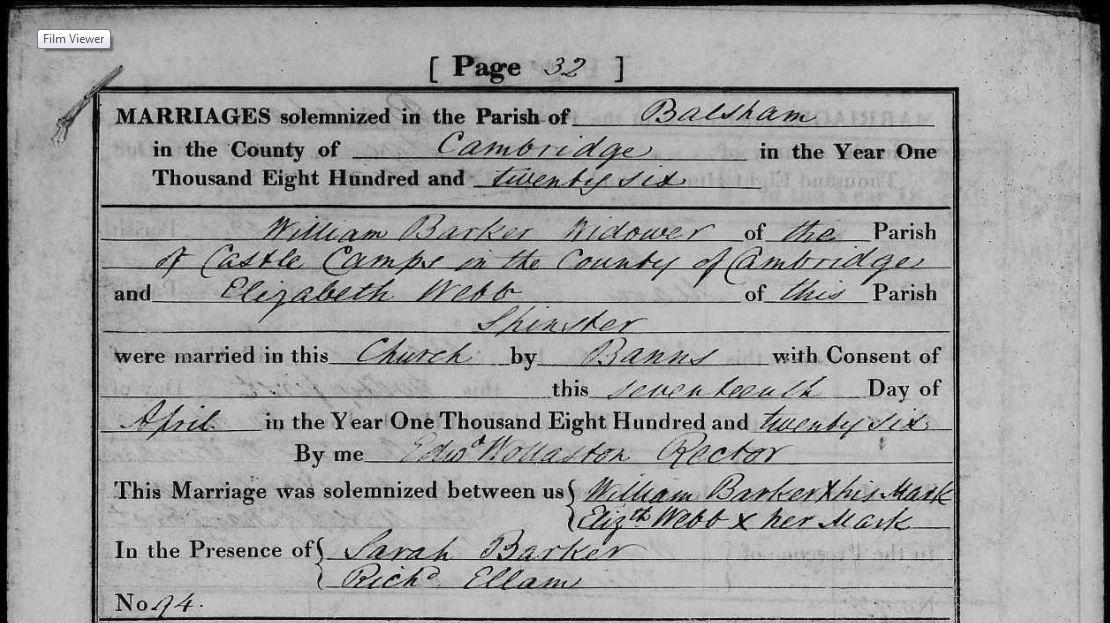 Film Viewer
[ Page 32 ]
MARRIAGES solemnized in the Parish of Balsham
in the County of Cambridge in the Year One
Thousand Eight Hundred and twenty six
William Barker Widower of the Parish
of Castle Camps in the County of Cambridge
and Elizabeth Webb of this Parish
Spinster
were married in this Church by Banns with Consent of
this seventeenth Day of
April in the Year One Thousand Eight Hundred and twenty six
By me Edwd Wollaston Rector
This Marriage was solemnized between us { William Barker X his Mark
Elizth Webb X her Mark
In the Presence of { Sarah Barker
Richd Ellam
No 94.